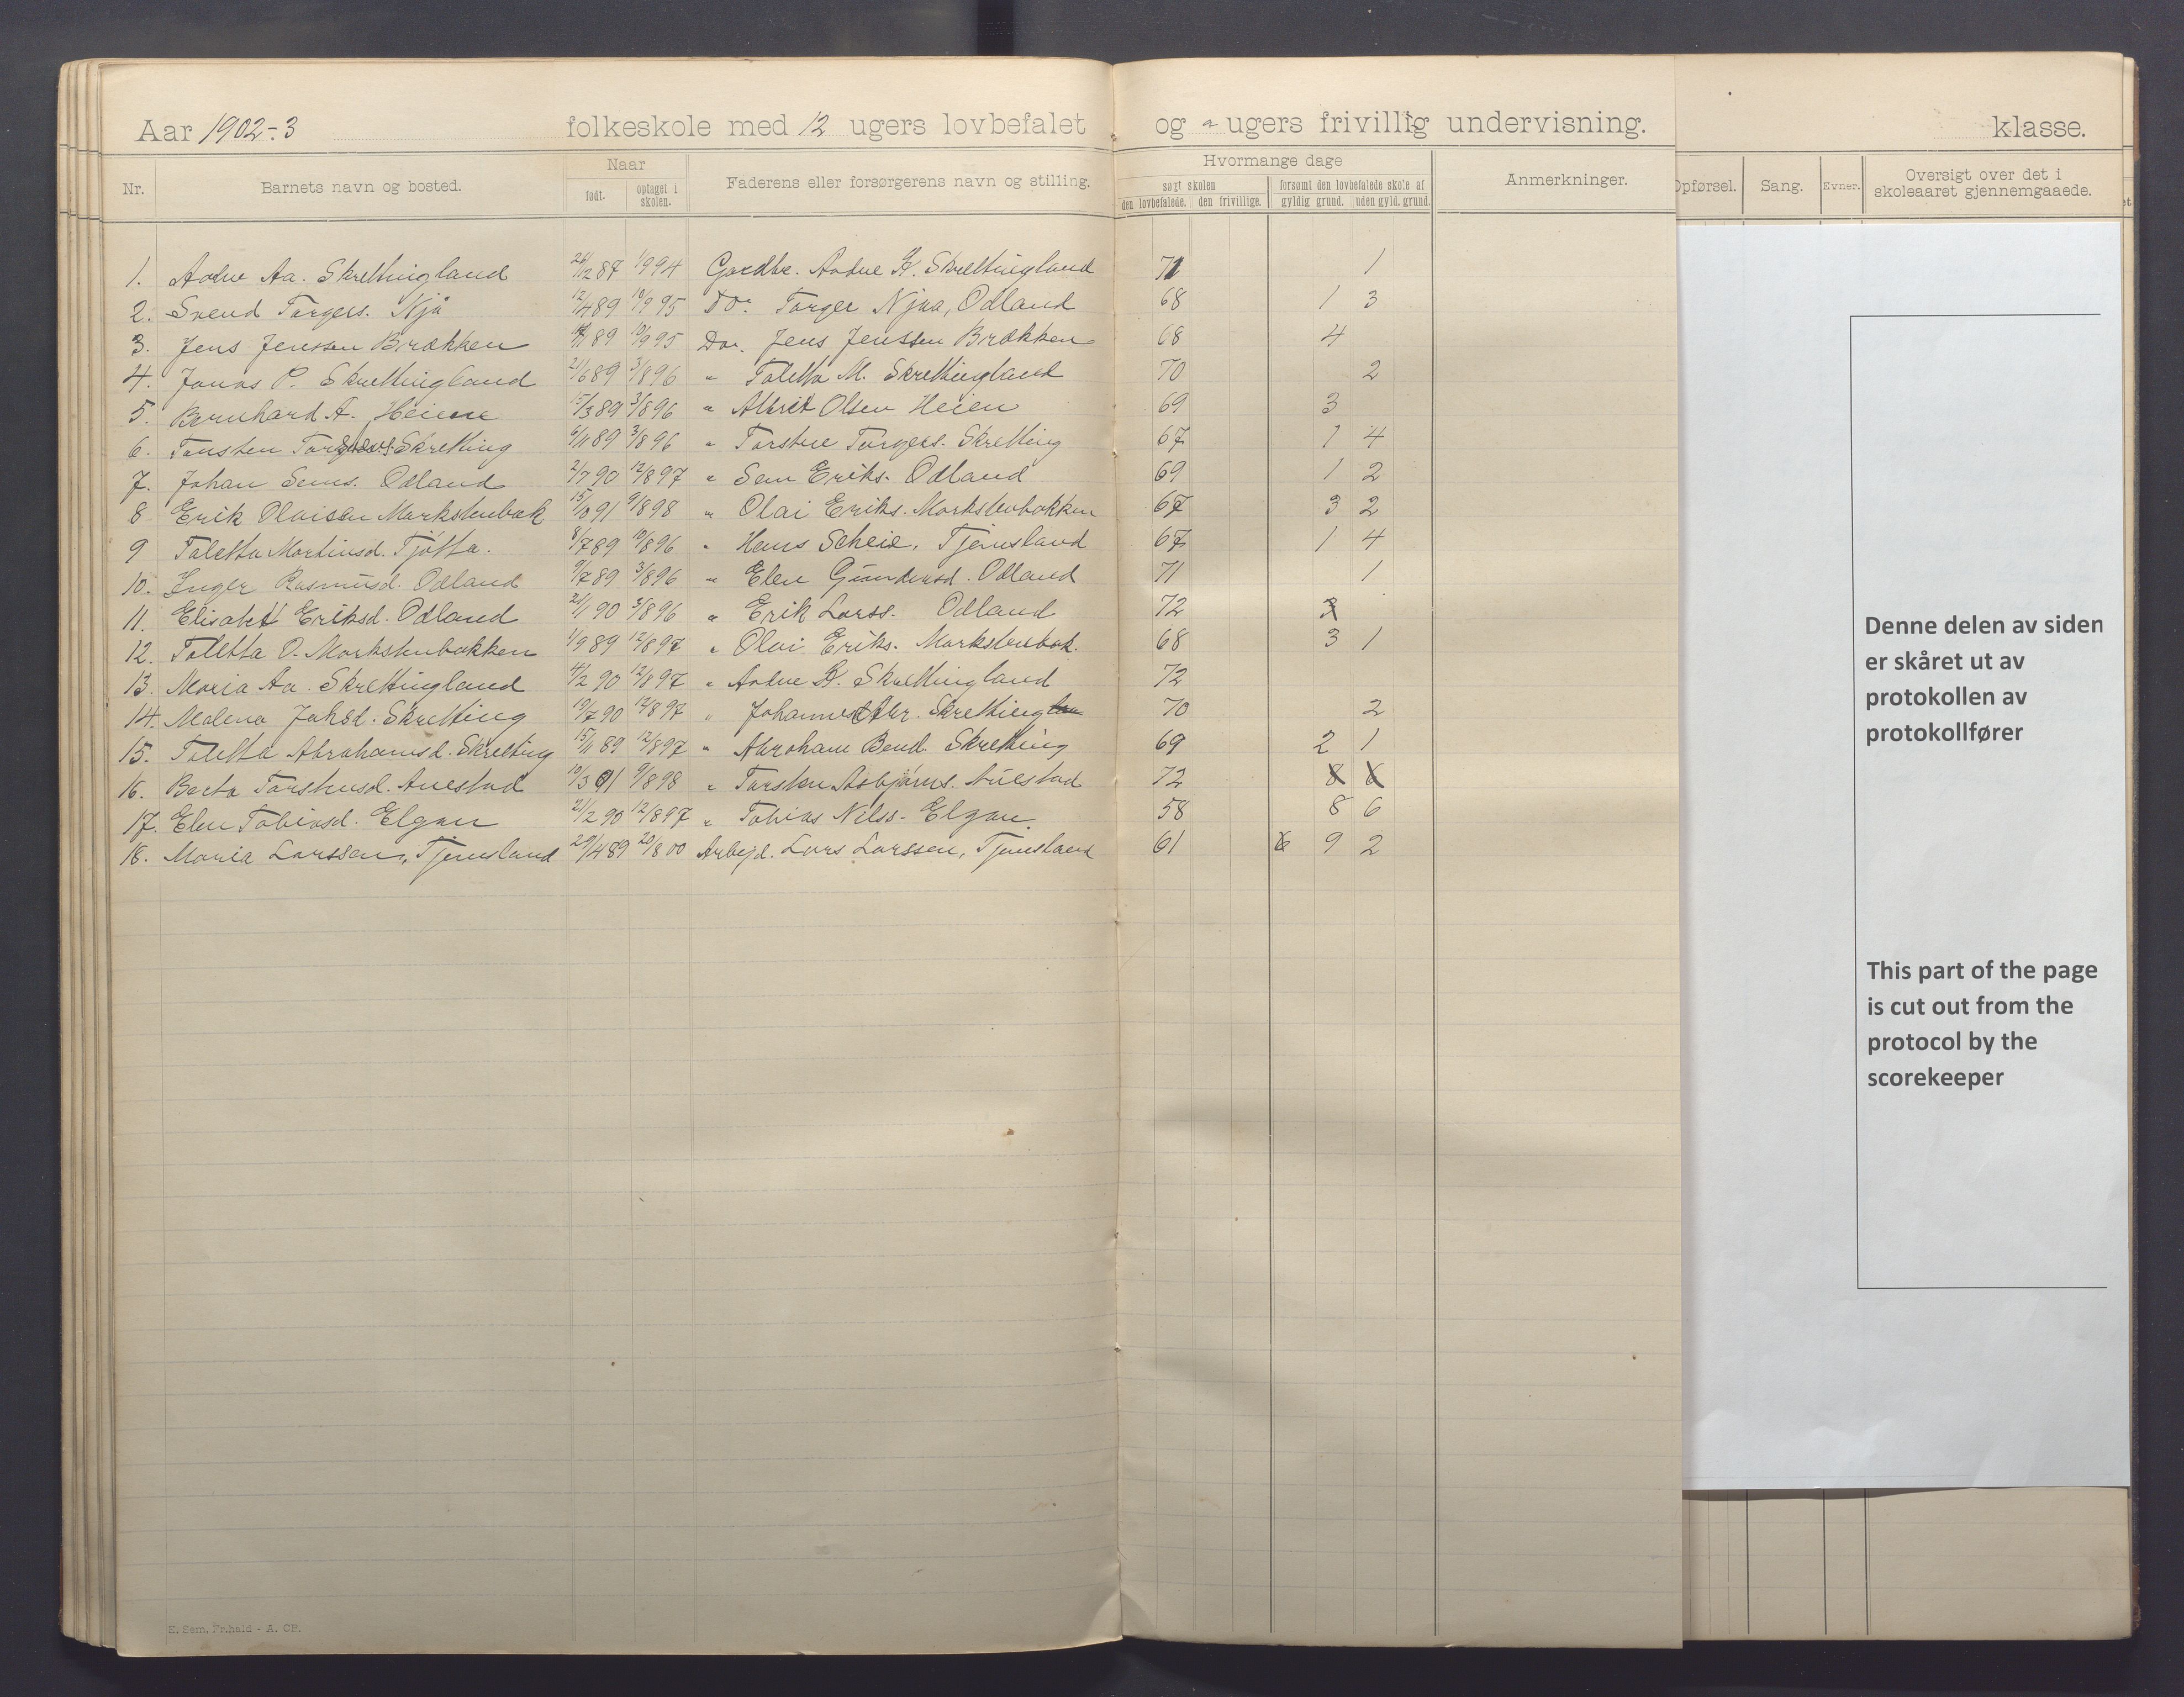 Aar 1902-3 folkeskole med 12 ugers lovbefalet og - ugers frivillig undervisning. klasse.
Nr. Barnets navn og bosted. Naar født. optaget i skolen. Faderens eller forsørgerens navn og stilling. Hvormange dage søgt skolen den lovbefalede. den frivillige. forsømt den lovbefalede skole af gyldig grund. uden gyld. grund. Anmerkninger. Opførsel. Sang. Evner. Oversigt over det i skoleaaret gjennemgaaede.
1. Aadne Aa. Skrettingland 26/12 87 1/9 94 Gaardbr. Aadne K. Skrettingland 71 1
2. Svend Torgers. Njå 12/4 89 10/9 95 Do. Torger Njaa, Odland 68 1 3
3. Jens Jenssen Brækken 89 10/9 95 Do. Jens Jenssen Brækken 68 4
4. Jonas P. Skrettingland 21/6 89 3/8 96 " Taletta M. Skrettingland 70 2
5. Bernhard A. Heien 15/3 89 3/8 96 " Albrit Olsen Heien 69 3
6. Skretting 6/11 89 3/8 96 " Torgers. Skretting 67 1 4
7. Johan Sems. Odland 2/7 90 12/8 97 " Sem Eriks. Odland 69 1 2
8 Erik Olaisen Markstenbak 15/10 91 9/8 98 " Olai Eriks. Markstenbakken 67 3 2
9 Taletta Martinsd. Tjøtta. 8/7 89 10/8 96 " Hans Scheie, Tjemsland 67 1 4
10. Inger Rasmusd. Odland 9/7 89 3/8 96 " Elen Gundersd. Odland 71 1
11. Elisabet Eriksd. Odland 21/1 90 3/8 96 " Erik Larss. Odland 72 3
12. Taletta O. Markstenbakken 1/9 89 12/8 97 " Olai Eriks. Markstenbak. 68 3 1
13. Maria Aa. Skrettingland 4/2 90 12/8 97 " Aadne K. Skrettingland 72
14. Malena Johsd. Skretting 19/7 90 12/8 97 " Johannes Abr. Skretting 70 2
15. Taletta Abrahamsd. Skretting 15/11 89 12/8 97 " Abraham Bend. Skretting 69 2 1
16. Berta Torstensd. Auestad 10/3 91 9/8 98 " Torsten Asbjørns. Auestad 72 8 6
17. Elen Tobiasd. Elgan 21/2 90 12/8 97 " Tobias Nilss. Elgan 58 8 6
18. Maria Larssen, Tjemsland 29/4 89 20/8 00 Arbejd. Lars Larssen, Tjemsland 61 9 2
Denne delen av siden
er skåret ut av
protokollen av
protokollfører
This part of the page
is cut out from the
protocol by the
scorekeeper
E. Sem, Fr.hald - A. CP.